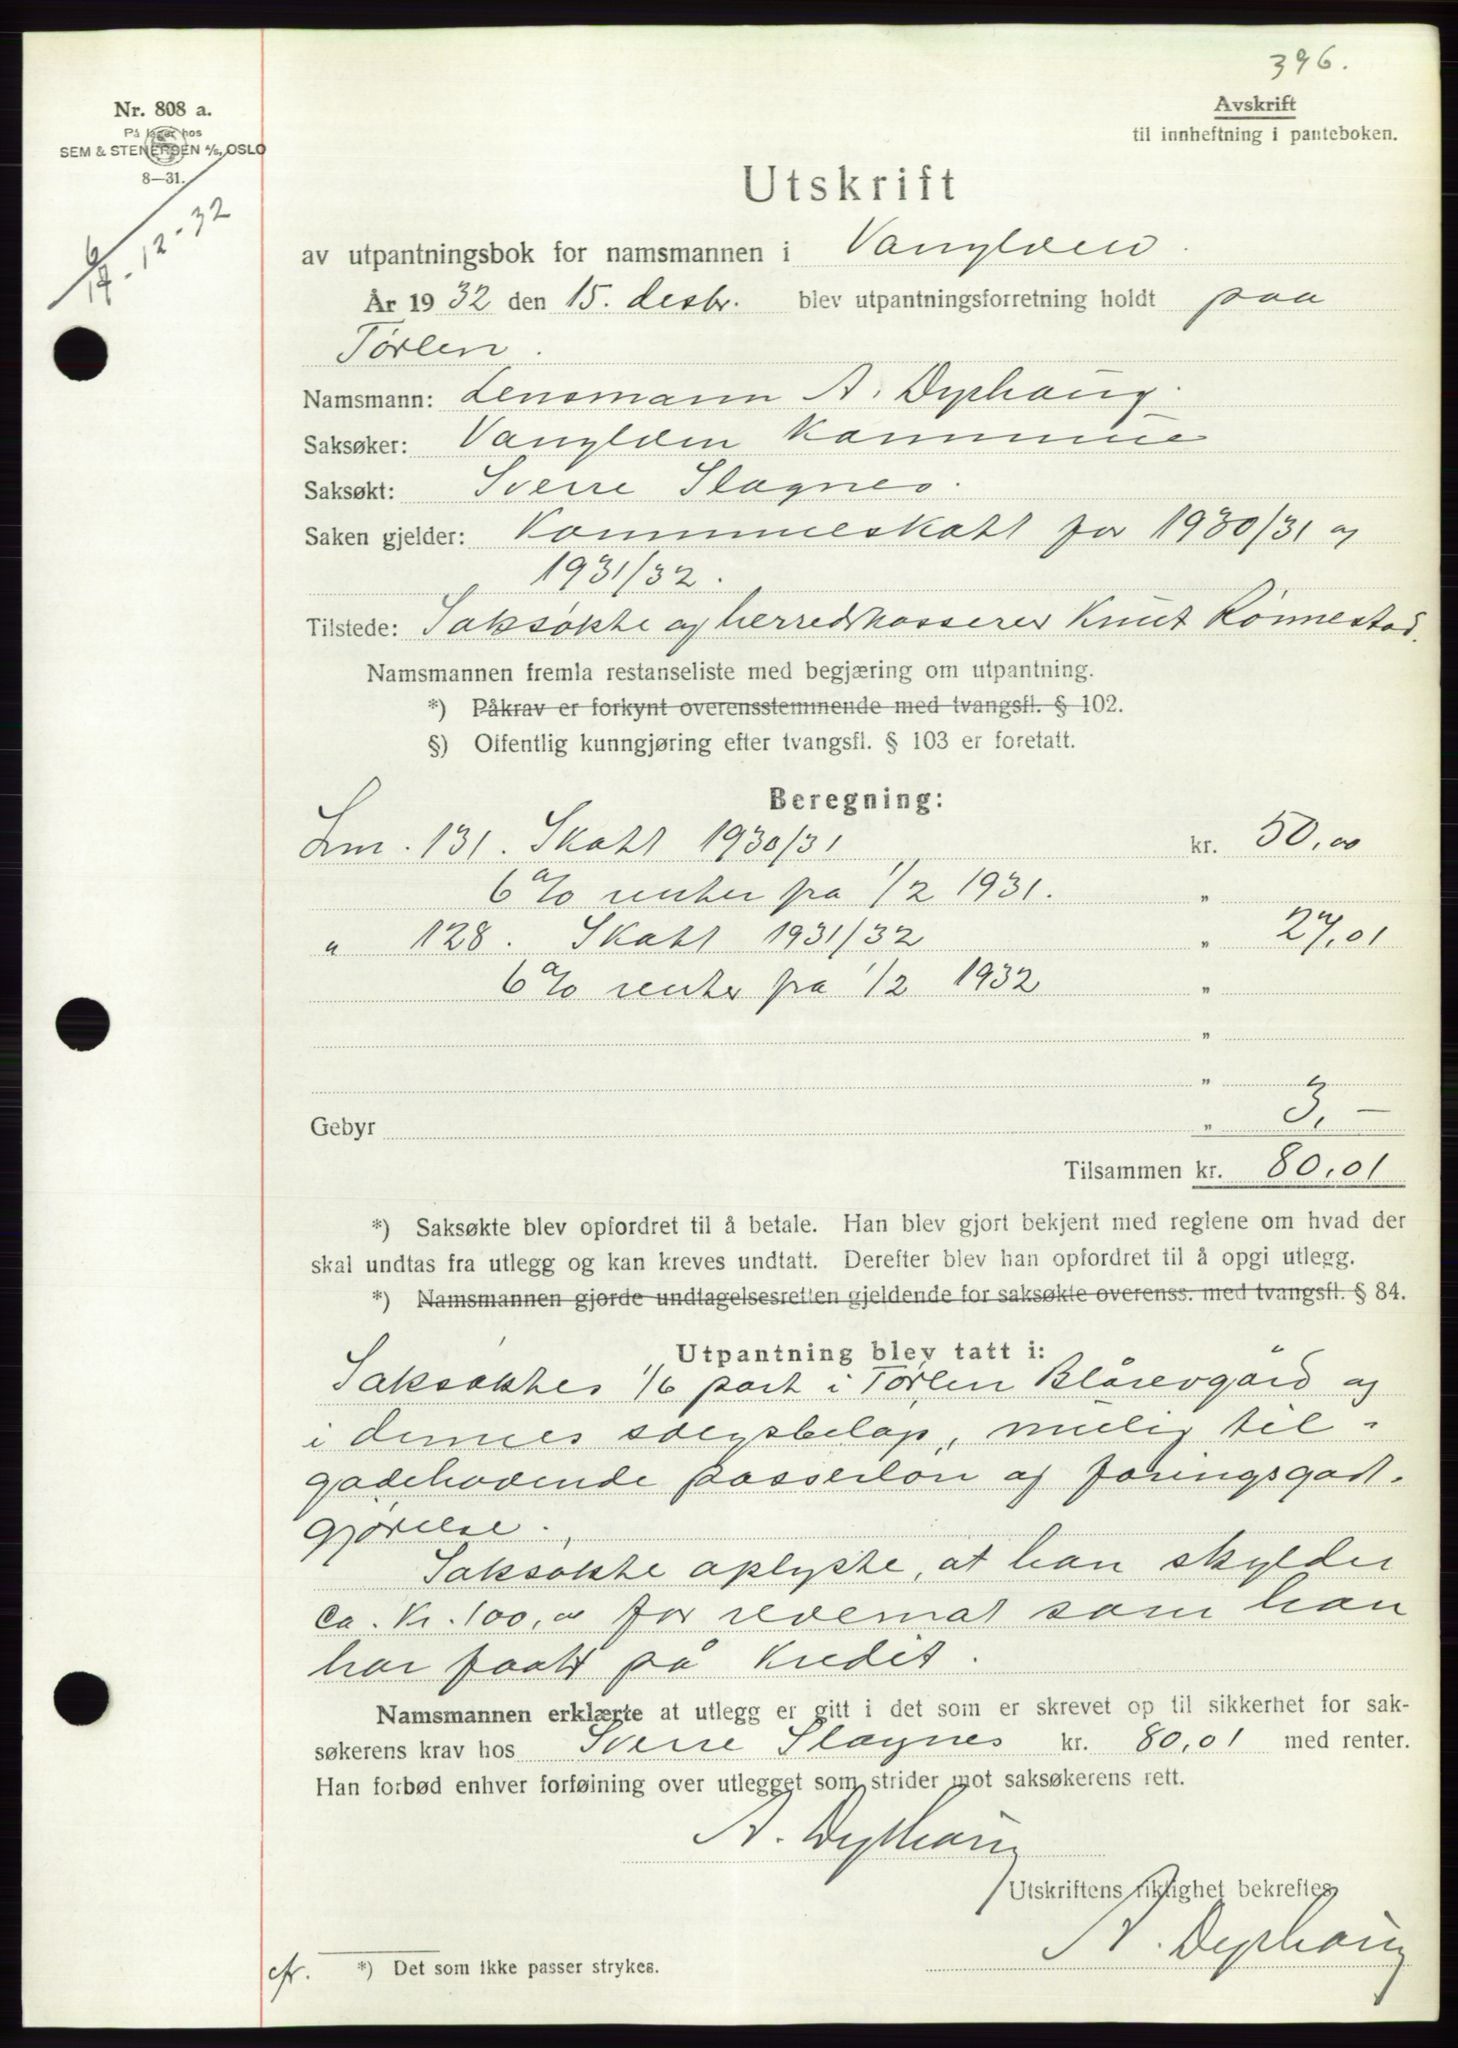 396.
Nr. 808 a.
På lager hos
SEM & STENERSEN A/S, OSLO
8—31.
6/17-12-32
Avskrift
til innheftning i panteboken.
Utskrift
av utpantningsbok for namsmannen i Vanylven
År 1932 den 15. desbr. blev utpantningsforretning holdt paa
Tørlen.
Namsmann: Lensmann A. Dyrhaug.
Saksøker: Vanylven Kommune
Saksøkt: Sverre Slagnes.
Saken gjelder: Kommuneskatt for 1930/31 og
1931/32.
Tilstede: Saksøkte og herredskasserer Knut Rønnestad.
Namsmannen fremla restanseliste med begjæring om utpantning.
*) Påkrav er forkynt overensstemmende med tvangsfl. § 102.
§) Offentlig kunngjøring efter tvangsfl. § 103 er foretatt.
Beregning:
Lnr. 131. Skatt 1930/31 kr. 50,00
6 % renter fra 1/2 1931. „
" 128. Skatt 1931/32 „ 27,01
6 % renter fra 1/2 1932 „
„
„
Gebyr „ 3,—
Tilsammen kr. 80,01
*) Saksøkte blev opfordret til å betale. Han blev gjort bekjent med reglene om hvad der
skal undtas fra utlegg og kan kreves undtatt. Derefter blev han opfordret til å opgi utlegg.
*) Namsmannen gjorde undtagelsesretten gjeldende for saksøkte overenss. med tvangsfl. § 84.
Utpantning blev tatt i:
Saksøktes 1/6 part i Tørlen Blårevgård og
i dennes salgsbeløp, mulig til-
godehavende passerløn og foringsgodt-
gjørelse.
Saksøkte oplyste, at han skylder
ca. Kr. 100,00 for revemat som han
har faatt på kredit.
Namsmannen erklærte at utlegg er gitt i det som er skrevet op til sikkerhet for sak-
søkerens krav hos Sverre Slagnes kr. 80,01 med renter.
Han forbød enhver forføining over utlegget som strider mot saksøkerens rett.
A. Dyrhaug
Utskriftens riktighet bekreftes
A. Dyrhaug
*) Det som ikke passer strykes.